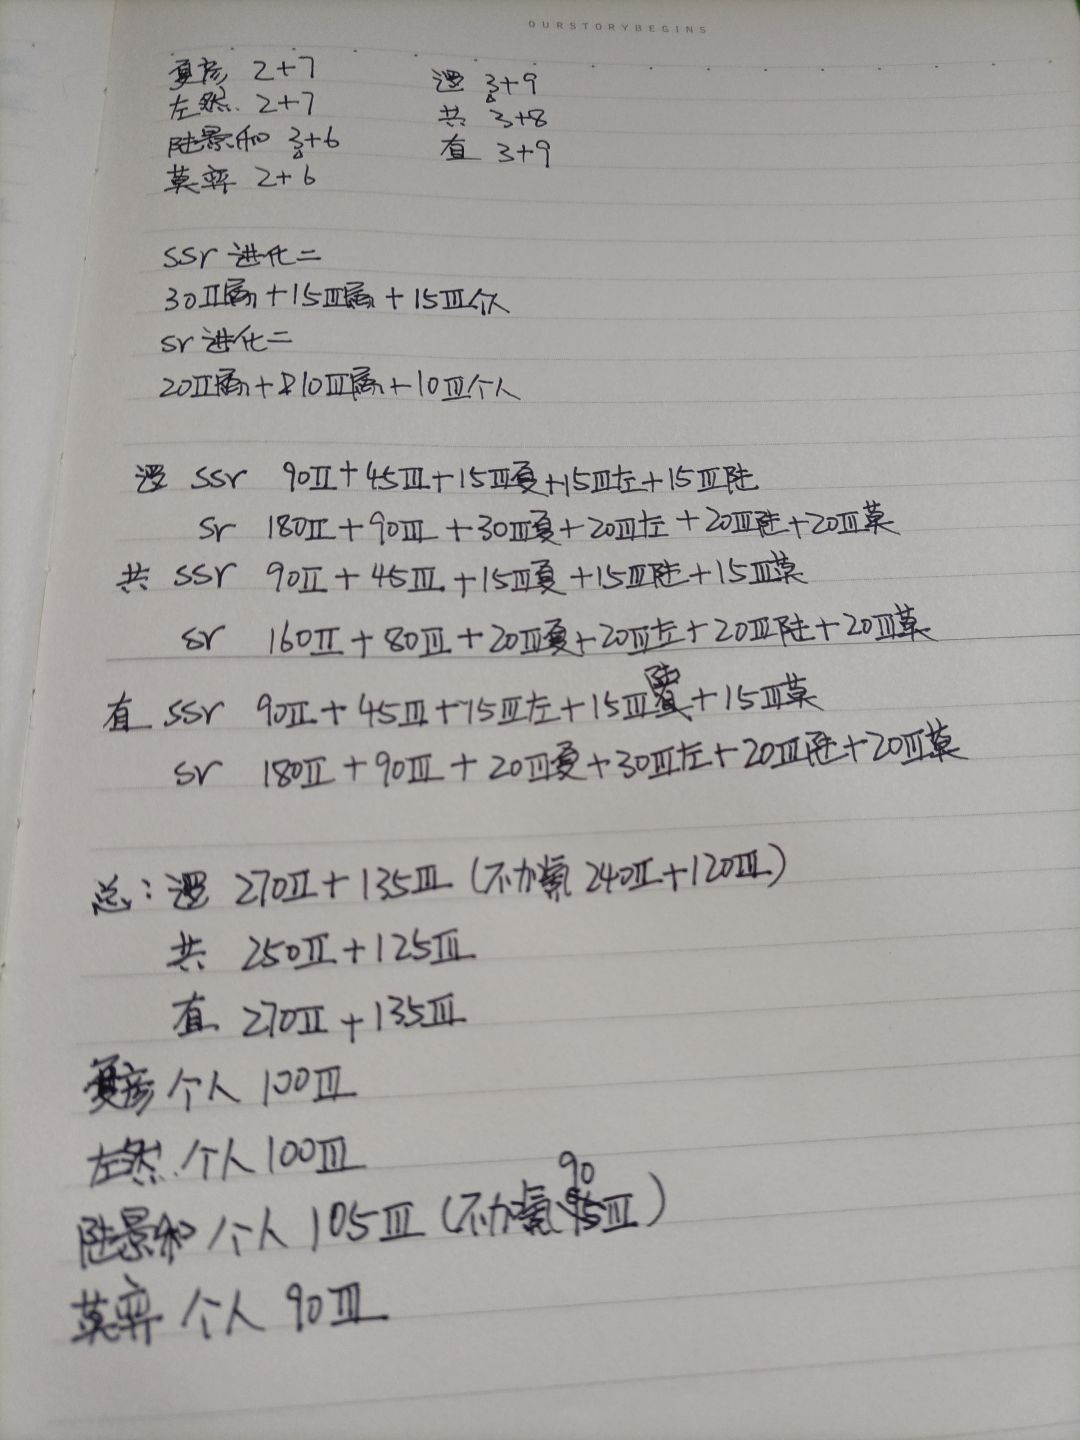 OURSTORYBEGINS
夏彦 2+7
左然 2+7
陆景和 3+6
莫弈 2+6
逻 3+9
共 3+8
直 3+9
SSr 进化二
30Ⅱ属+15Ⅲ属+15Ⅲ个人
Sr 进化二
20Ⅱ属+10Ⅲ属+10Ⅲ个人
逻 SSr 90Ⅱ+45Ⅲ+15Ⅲ夏+15Ⅲ左+15Ⅲ陆
Sr 180Ⅱ+90Ⅲ+30Ⅲ夏+20Ⅲ左+20Ⅲ陆+20Ⅲ莫
共 SSr 90Ⅱ+45Ⅲ+15Ⅲ夏+15Ⅲ陆+15Ⅲ莫
Sr 160Ⅱ+80Ⅲ+20Ⅲ夏+20Ⅲ左+20Ⅲ陆+20Ⅲ莫
直 SSr 90Ⅱ+45Ⅲ+15Ⅲ左+15Ⅲ陆+15Ⅲ莫
Sr 180Ⅱ+90Ⅲ+20Ⅲ夏+30Ⅲ左+20Ⅲ陆+20Ⅲ莫
总:逻 270Ⅱ+135Ⅲ(不加氪 240Ⅱ+120Ⅲ)
共 250Ⅱ+125Ⅲ
直 270Ⅱ+135Ⅲ
夏彦 个人 100Ⅲ
左然 个人 100Ⅲ
陆景和 个人 105Ⅲ(不加氪 90Ⅲ)
莫弈 个人 90Ⅲ